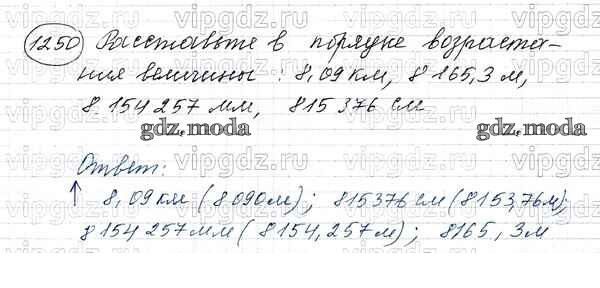 vipgdz.ru vipgdz.ru vipgdz.ru
1250 Расставьте в порядке возраста-
ния величины: 8,09 км, 8 165,3 м,
8 154 257 мм, 815 376 см
gdz.moda gdz.moda
Ответ:
↑ 8,09 км (8 090 м); 815376 см (8153,76 м);
8154 257 мм (8 154,257 м); 8165,3 м